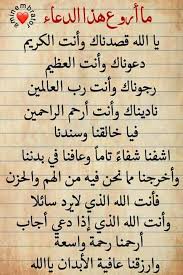 ما أروع هذا الدعاء
يا الله قصدناك وأنت الكريم
دعوناك وأنت العظيم
رجوناك وأنت رب العالمين
ناديناك وأنت أرحم الراحمين
فيا خالقنا وسندنا
اشفنا شفاءً تاماً وعافنا في بدننا
وأخرجنا مما نحن فيه من الهم والحزن
فأنت الله الذي لايرد سائلا
وأنت الله الذي إذا دعي أجاب
أرحمنا رحمة واسعة
وارزقنا عافية الأبدان ياالله